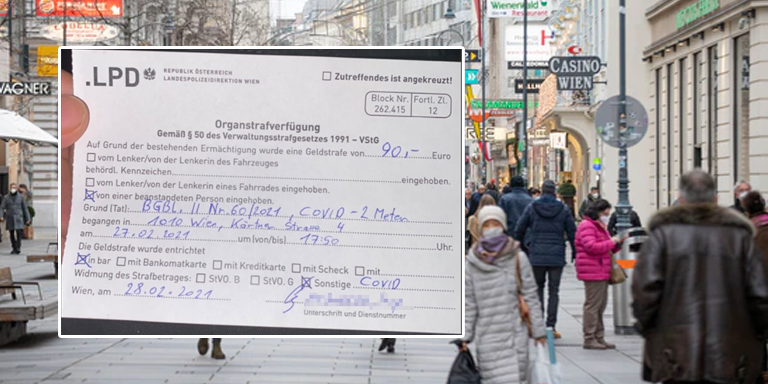 .LPD
REPUBLIK ÖSTERREICH
LANDESPOLIZEIDIREKTION WIEN
Zutreffendes ist angekreuzt!
Block Nr. Fortl. Zl.
262.415 12
Organstrafverfügung
Gemäß § 50 des Verwaltungsstrafgesetzes 1991 – VStG
Auf Grund der bestehenden Ermächtigung wurde eine Geldstrafe von 90,- Euro
vom Lenker/von der Lenkerin des Fahrzeuges
behördl. Kennzeichen eingehoben.
vom Lenker/von der Lenkerin eines Fahrrades eingehoben.
von einer beanstandeten Person eingehoben.
Grund (Tat): BGBL. II Nr. 60/2021, COVID - 2 Meter
begangen in 1010 Wien, Kärtner Strasse 4
am 27.02.2021 um (von/bis) 17:50 Uhr.
Die Geldstrafe wurde entrichtet
in bar mit Bankomatkarte mit Kreditkarte mit Scheck mit
Widmung des Strafbetrages: StVO. B StVO. G Sonstige COVID
Wien, am 28.02.2021
Unterschrift und Dienstnummer
WAGNER
Wienerwald
RESTAURANT
CASINO
WIEN